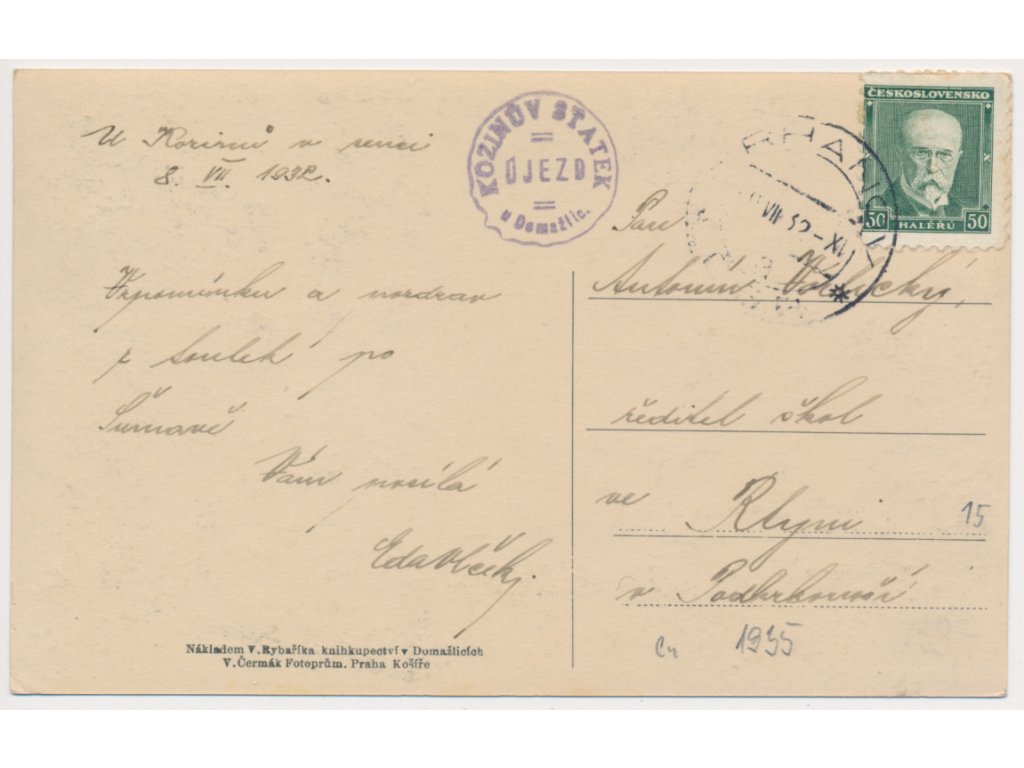 U Kozinů v srnci
8. VII. 1932.
KOZINŮV STATEK
ÚJEZD
u Domažlic.
ČESKOSLOVENSKO
50 HALÉŘŮ 50
VII 32-XI
Vzpomínku a pozdrav
z toulek po
Šumavě
Vám posílá
Eda Vlčský.
Pan
Antonín
ředitel škol
ve Rtyni
v Podkrkonoší
15
1935
Nákladem V. Rybaříka knihkupectví v Domažlicích
V. Čermák Fotoprům. Praha Košíře